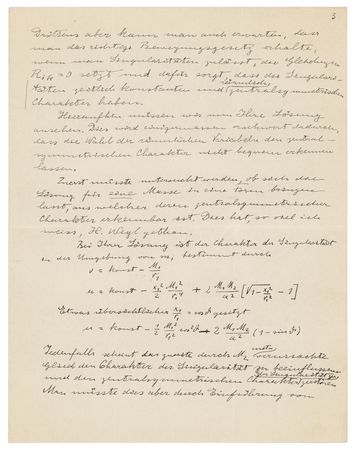 3
Drittens aber kann man auch erwarten, dass
man das richtige Bewegungsgesetz erhalte,
wenn man Singularitäten zulässt, die Gleichungen
Rik = 0 setzt und dafür sorgt, dass die Singulari-
täten zeitlich konstanten und räumlich zentralsymmetrischen
Charakter haben.
Hieraufhin müssen wir nun Ihre Lösung
ansehen. Dies wird einigermassen erschwert dadurch,
dass die Wahl der räumlichen Variabeln den zentral-
symmetrischen Charakter nicht bequem erkennen
lassen.
Zuerst müsste untersucht werden, ob sich die
Lösung für eine Masse in eine Form bringen
lässt, aus welcher deren zentralsymmetrischer
Charakter erkennbar ist. Dies hat, so viel ich
weiss, H. Weyl gethan.
Bei Ihrer Lösung ist der Charakter der Singularität
in der Umgebung von m₁ bestimmt durch
v = konst − M₁/r₁
u = konst − x₁²/2 M₁²/r₁⁴ + 2 M₁M₂/a² [√(1 − x₁²/r₁²) − 1]
Etwas übersichtlicher x₁/r₁ = cosϑ gesetzt
u = konst − 1/2 M₁²/r₁² cos²ϑ + 2 M₁M₂/a² (1 − sinϑ)
Jedenfalls scheint das zweite durch M₂ mitverursachte
Glied den Charakter der Singularität zu beeinflussen
und den zentralsymmetrischen Charakter der Singularität zu zerstören
Man müsste dies aber durch Einführung von